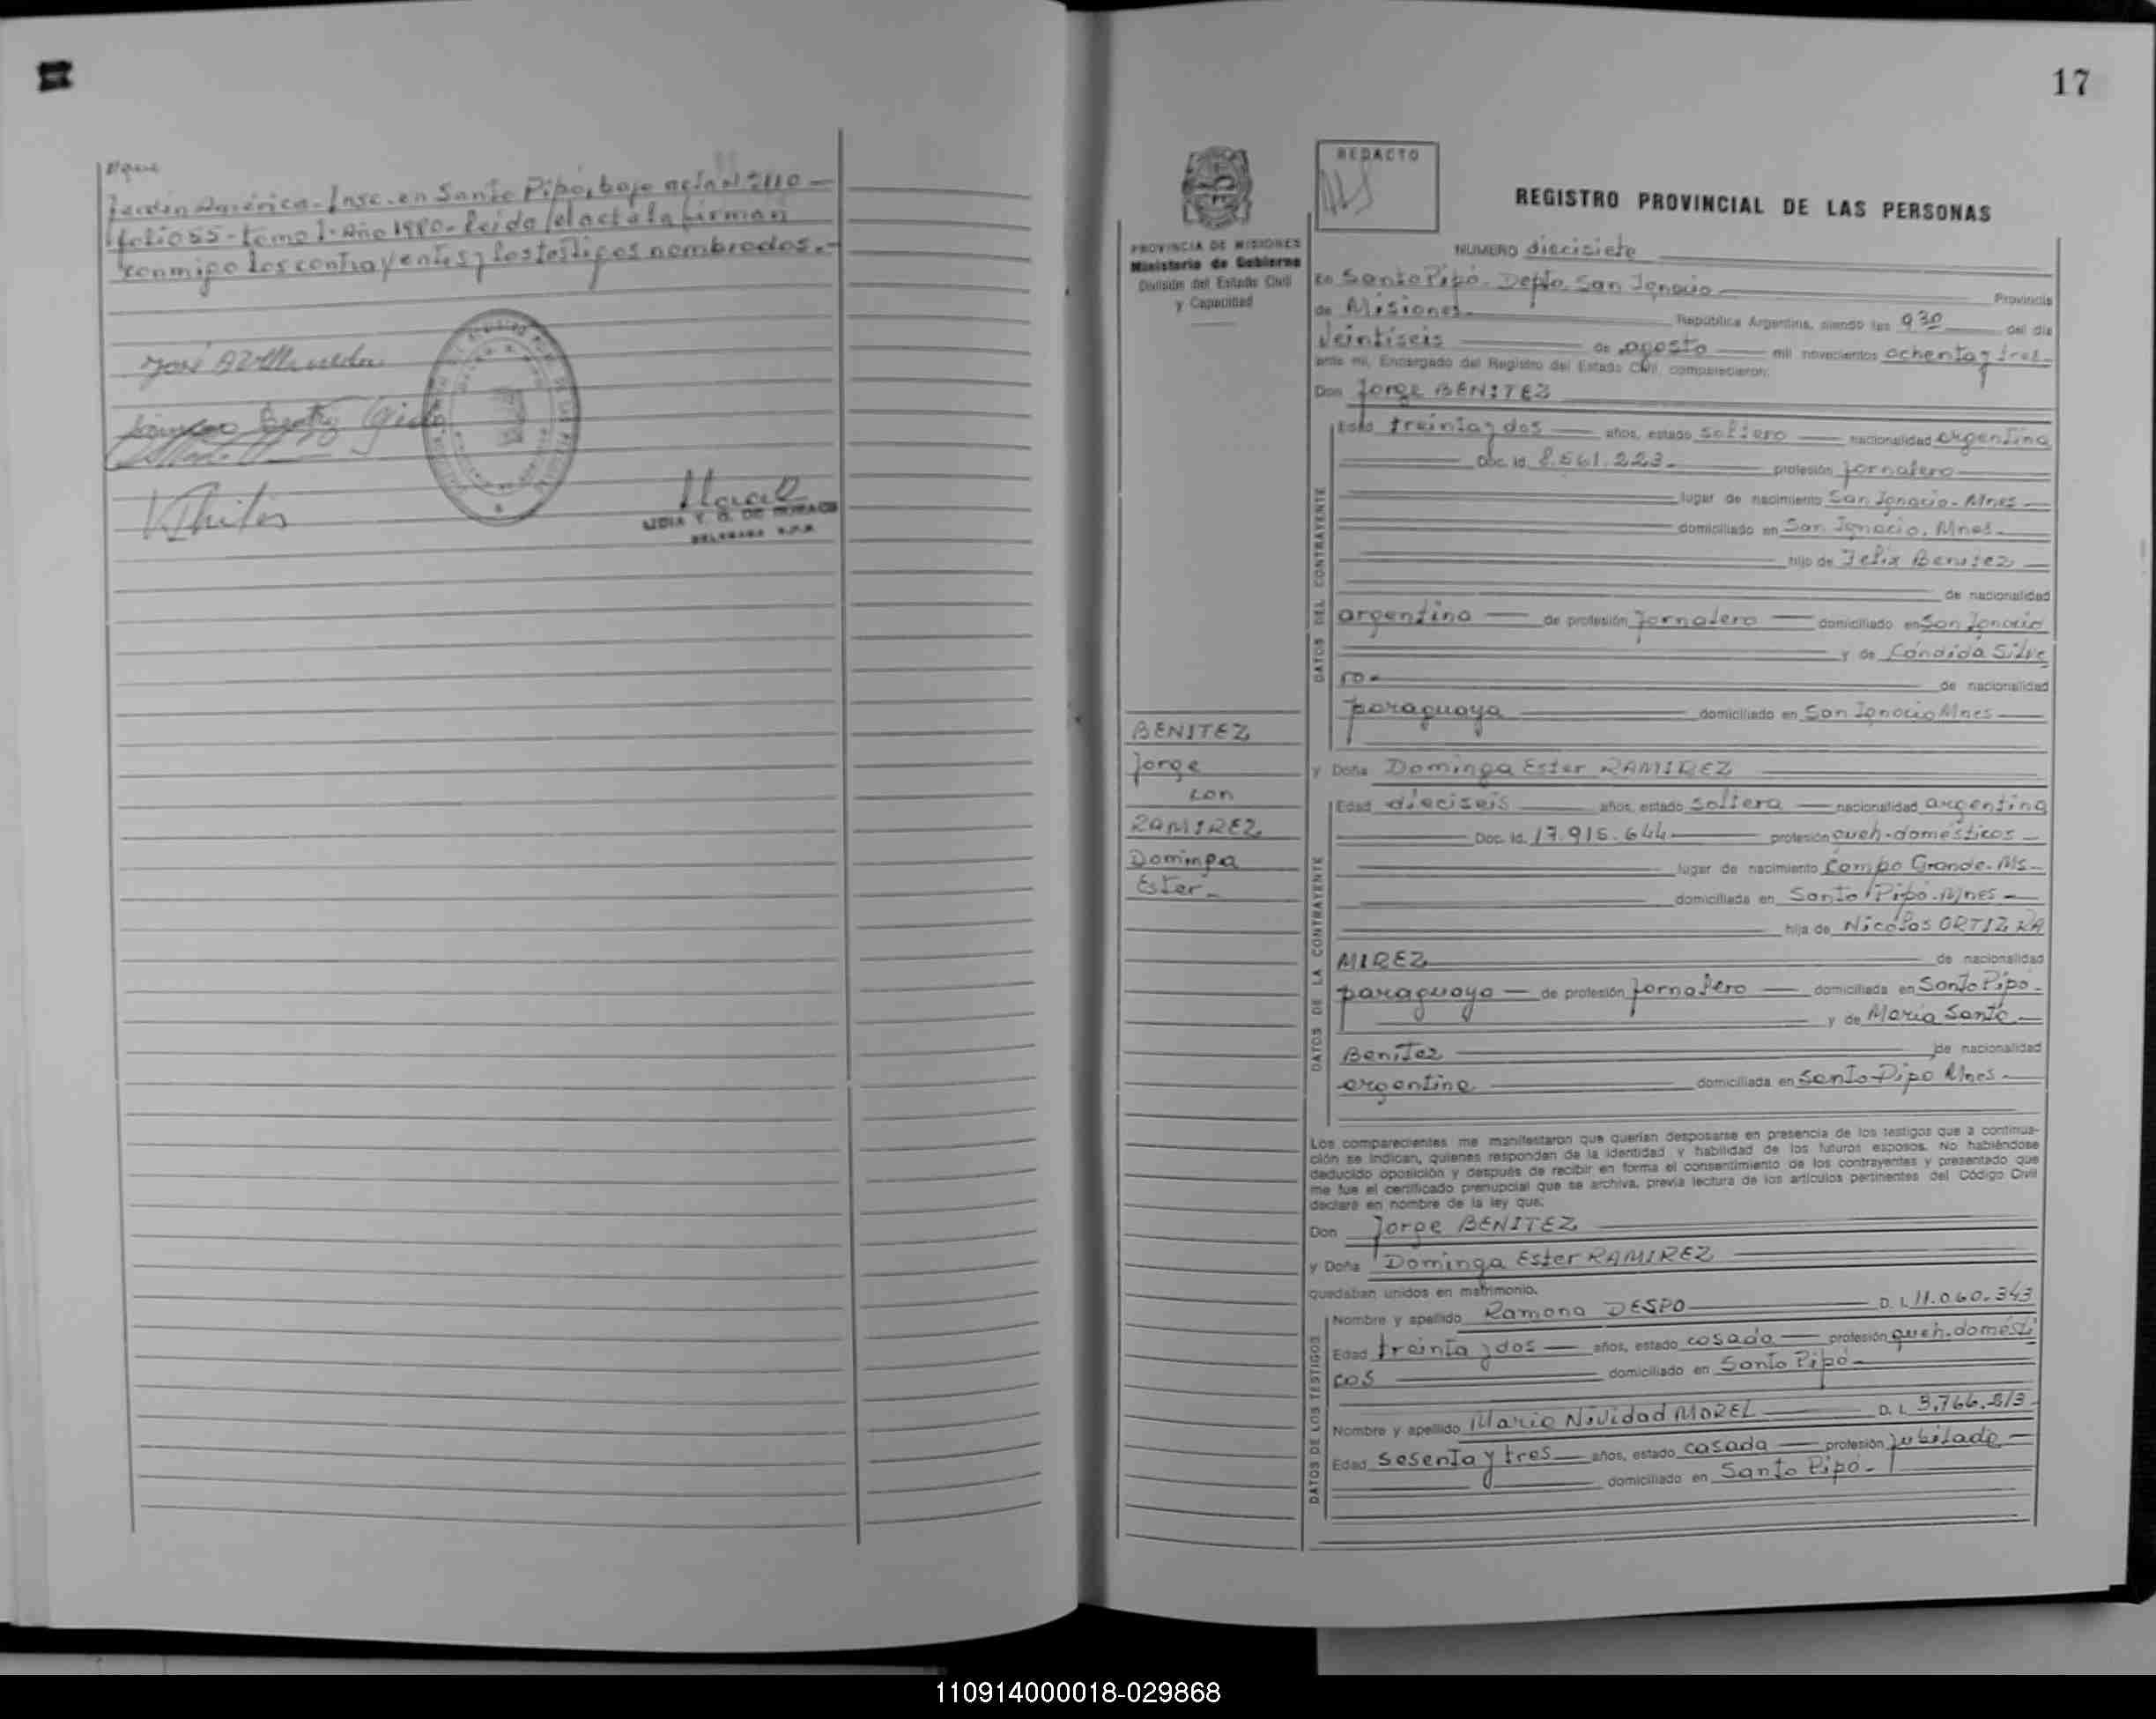 Jardin América - Insc. en Santo Pipó, bajo acta Nº 110 -
folio 55 - tomo I - Año 1980 - leido el acta la firman
conmigo los contrayentes y los testigos nombrados. -
José
Beatriz
LIDIA T. G. DE
DELEGADA R.P.P.
17
REDACTO
REGISTRO PROVINCIAL DE LAS PERSONAS
PROVINCIA DE MISIONES
Ministerio de Gobierno
División del Estado Civil
y Capacidad
NUMERO diecisiete
En Santo Pipó - Depto. San Ignacio Provincia
de Misiones República Argentina, siendo las 930 del día
veintiseis de agosto mil novecientos ochenta y tres
ante mi, Encargado del Registro del Estado Civil, comparecieron:
Don Jorge BENITEZ
DATOS DEL CONTRAYENTE
Edad treinta y dos años, estado soltero nacionalidad argentina
Doc. Id. 8.561.223 profesión jornalero
lugar de nacimiento San Ignacio - Mnes
domiciliado en San Ignacio. Mnes.
hijo de Felix Benitez
de nacionalidad
argentina de profesión jornalero domiciliado en San Ignacio
y de Cándida Silve
ro - de nacionalidad
paraguaya domiciliado en San Ignacio Mnes
BENITEZ
Jorge
con
RAMIREZ
Dominga
Ester -
y Doña Dominga Ester RAMIREZ
DATOS DE LA CONTRAYENTE
Edad dieciseis años, estado soltera nacionalidad argentina
Doc. Id. 17.915.644 profesión queh. domésticos
lugar de nacimiento Campo Grande - Ms -
domiciliada en Santo Pipó - Mnes -
hija de Nicolas ORTIZ RA
MIREZ de nacionalidad
paraguaya de profesión jornalero domiciliada en Santo Pipó -
y de Maria Santa
Benitez de nacionalidad
argentina domiciliada en Santo Pipo Mnes -
Los comparecientes me manifestaron que querían desposarse en presencia de los testigos que a continua-
ción se indican, quienes responden de la identidad y habilidad de los futuros esposos. No habiéndose
deducido oposición y después de recibir en forma el consentimiento de los contrayentes y presentado que
me fue el certificado prenupcial que se archiva, previa lectura de los artículos pertinentes del Código Civil
declaré en nombre de la ley que:
Don Jorge BENITEZ
y Doña Dominga Ester RAMIREZ
quedaban unidos en matrimonio.
DATOS DE LOS TESTIGOS
Nombre y apellido Ramona DESPO D. I. 11.060.343
Edad treinta y dos años, estado casada profesión queh. domésti
cos domiciliado en Santo Pipó -
Nombre y apellido Maria Nividad MOREL D. I. 3.766.513
Edad sesenta y tres años, estado casada profesión jubilada
domiciliado en Santo Pipó -
110914000018-029868